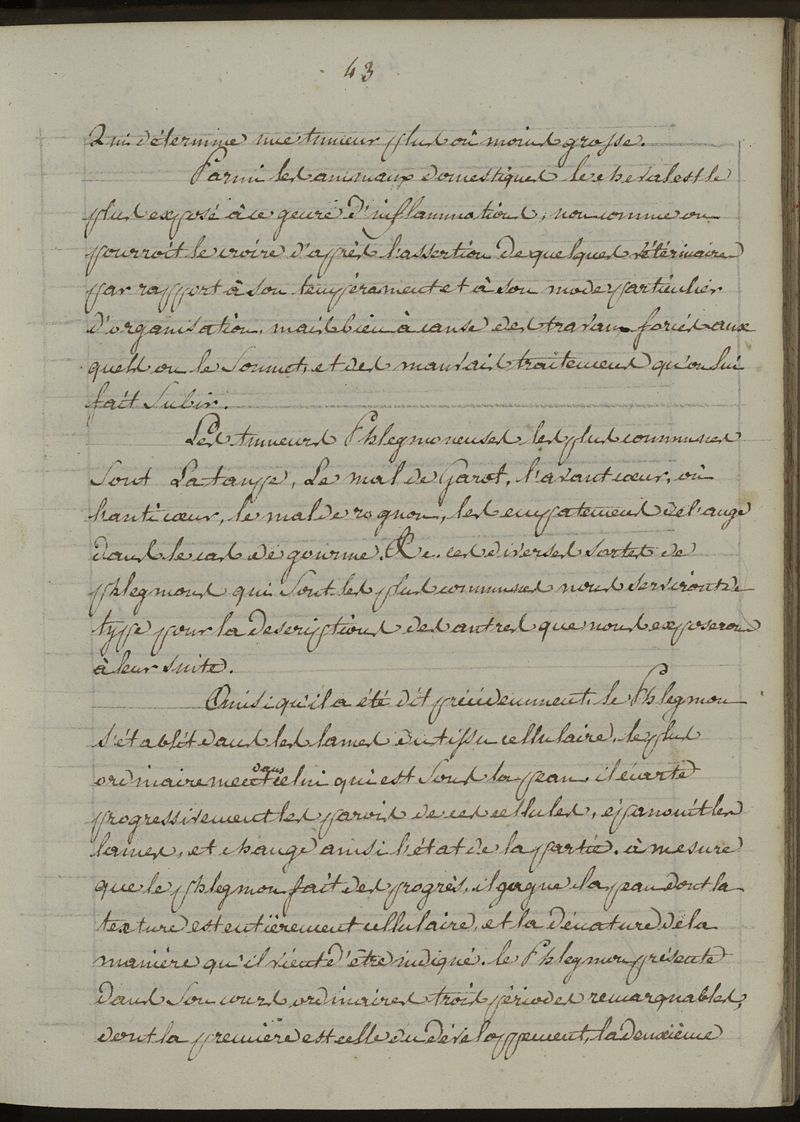 43
Qui détermine une tumeur plus où moins grosse.
Parmi les animaux domestiques le cheval est le
plus exposé à ce genre d'inflammations, non comme on
pourroit le croire d'après l'assertion de quelques vétérinaires
par rapport à son tempérament et à son mode particulier
d'organisation, mais bien à cause des travaux forcés aux
quels on le Soumet, et des mauvais traitemens qu'on lui
fait Subir.
Les tumeurs Phlegmoneuses les plus communes
Sont La taupe, Le mal de Garot, l'avant cœur, où
l'anti cœur, le mal de rognon, les empatement de l'auge
dans le cas de gourme. &c. ces diverses sortes de
phlegmons qui Sont les plus communes nous serviront de
type pour la descriptions des autres que nous exposerons
à leur suite.
Ainsi qu'il a été dit précédemment, le Phlegmon
s'établit dans les lames du tissu cellulaire, le plus
ordinairement dans celui qui est Sous la peau, il écarte
progressivement les parois de ces cellules, épanouit les
lames, et change ainsi l'état de la partie. à mesure
que le phlegmon fait des progrès, il gagne la peau dont la
texture est entièrement cellulaire, et la dénature de la
manière qu'il vient d'être indiqué. le Phlegmon présente
dans Son cours ordinaires trois périodes remarquables,
dont la première est celle du développement, la deuxième